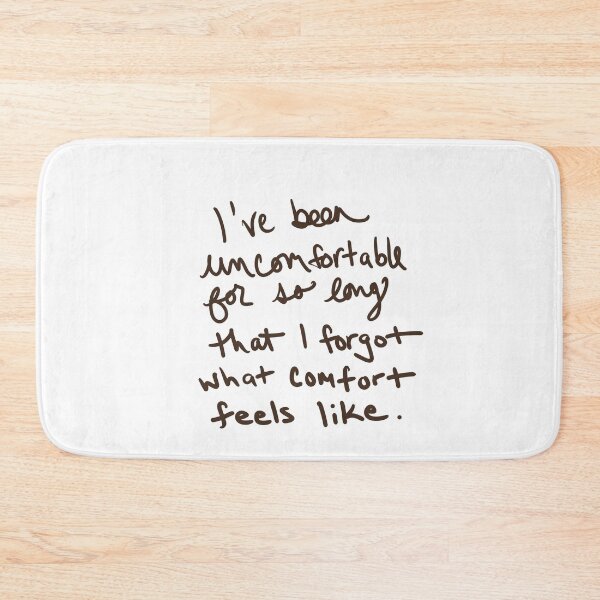 I've been
uncomfortable
for so long
that I forgot
what comfort
feels like.